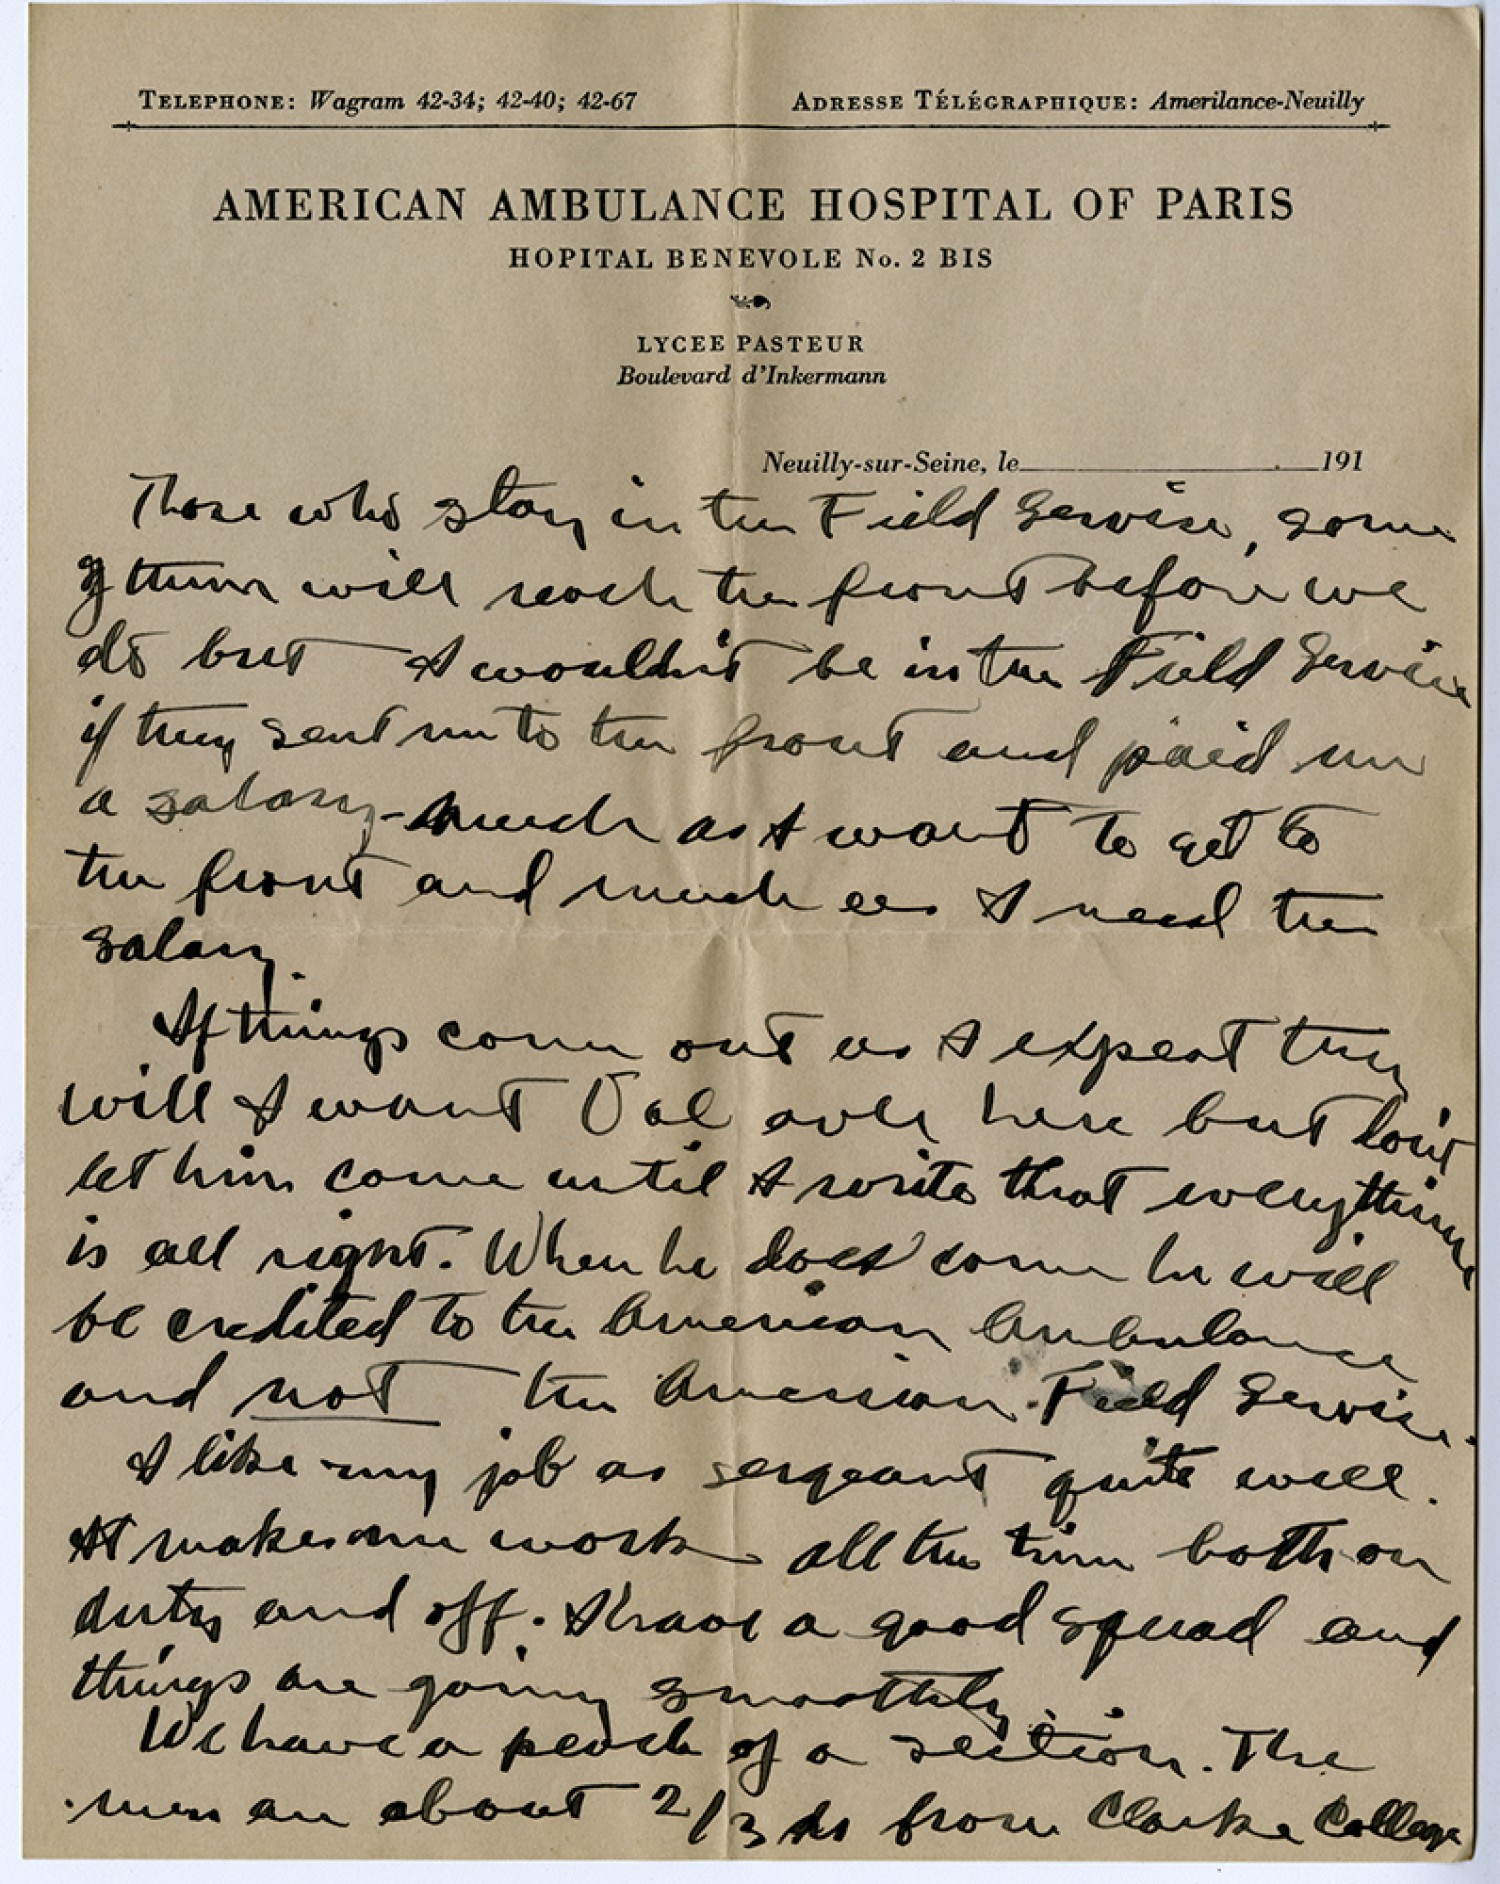 TELEPHONE: Wagram 42-34; 42-40; 42-67 ADRESSE TÉLÉGRAPHIQUE: Amerilance-Neuilly
AMERICAN AMBULANCE HOSPITAL OF PARIS
HOPITAL BENEVOLE No. 2 BIS
LYCEE PASTEUR
Boulevard d'Inkermann
Neuilly-sur-Seine, le 191
Those who stay in the Field Service, some
of them will reach the front before we
do but I wouldn't be in the Field Service
if they sent me to the front and paid me
a salary - much as I want to get to
the front and much as I need the
salary.
If things come out as I expect they
will I want Val over here but don't
let him come until I write that everything
is all right. When he does come he will
be credited to the American Ambulance
and not the American Field Service.
I like my job as sergeant quite well.
It makes me work all the time both on
duty and off. I have a good squad and
things are going smoothly.
We have a peach of a section. The
men are about 2/3 from Clarke College